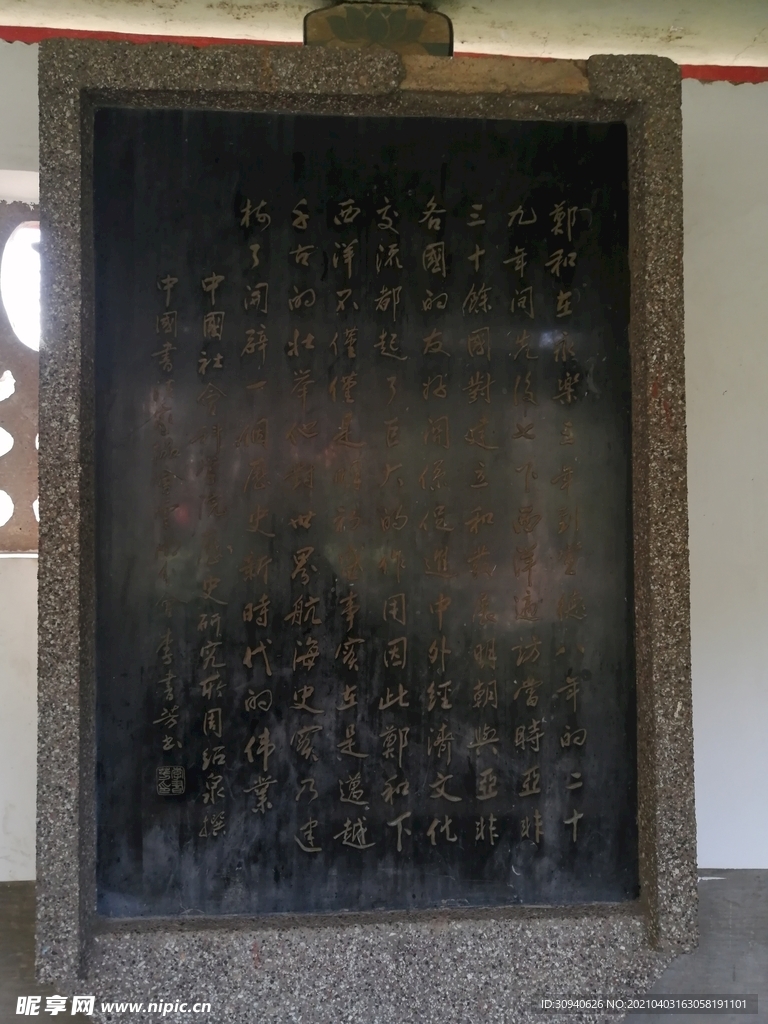 鄭和在永樂三年到宣德八年的二十
九年间先後七下西洋遍訪當時亞非
三十餘國對建立和发展明朝與亞非
各國的友好関係促進中外經濟文化
交流都起了巨大的作用因此鄭和下
西洋不僅僅是明初盛事實在是邁越
千古的壮举他對世界航海史實乃建
樹了開辟一個歷史新時代的偉業
中國社会科學院歷史研究所周紹泉撰
中國書法李書
昵享网 www.nipic.cn
ID:30940626 NO:20210403163058191101